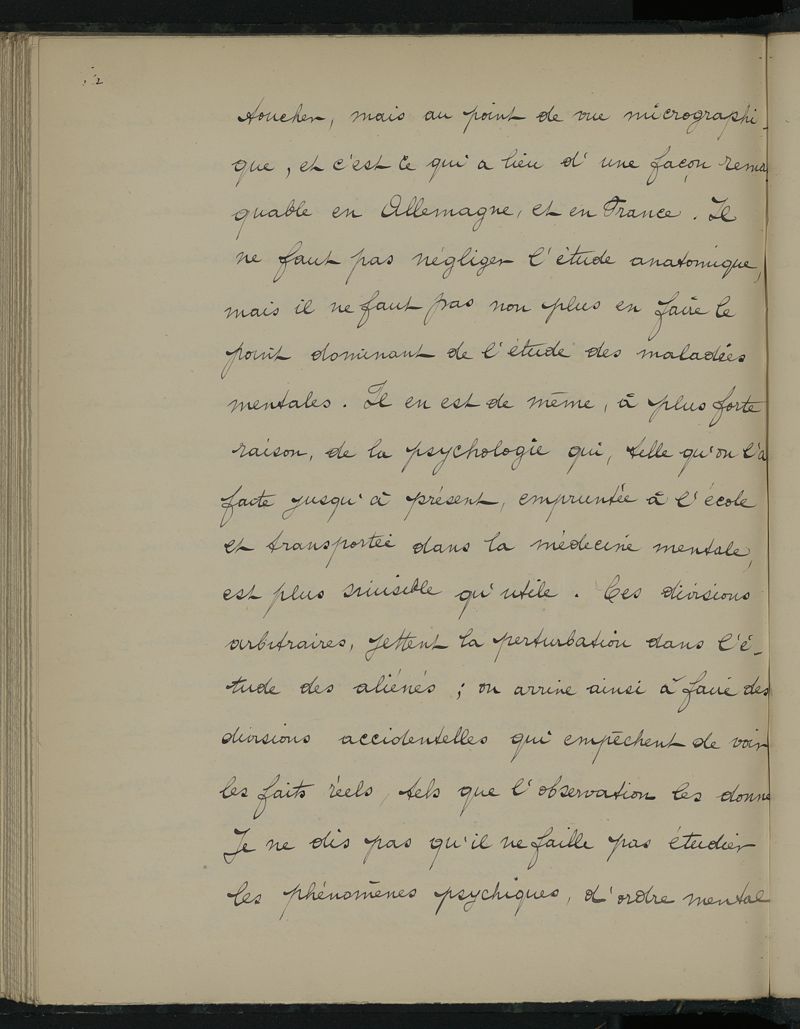 toucher, mais au point de vue micrographi-
que, et c'est ce qui a lieu d'une façon remar
quable en Allemagne, et en France. Il
ne faut pas négliger l'étude anatomique,
mais il ne faut pas non plus en faire le
point dominant de l'étude des maladies
mentales. Il en est de même, à plus forte
raison, de la psychologie qui, telle qu'on l'a
faite jusqu'à présent, empruntée à l'école
et transportée dans la médecine mentale,
est plus nuisible qu'utile. Ces divisions
arbitraires, jettent la perturbation dans l'é-
tude des aliénés ; on arrive ainsi à faire des
divisions accidentelles qui empêchent de voir
les faits réels, tels que l'observation les donne
Je ne dis pas qu'il ne faille pas étudier
les phénomènes psychiques, d'ordre mental